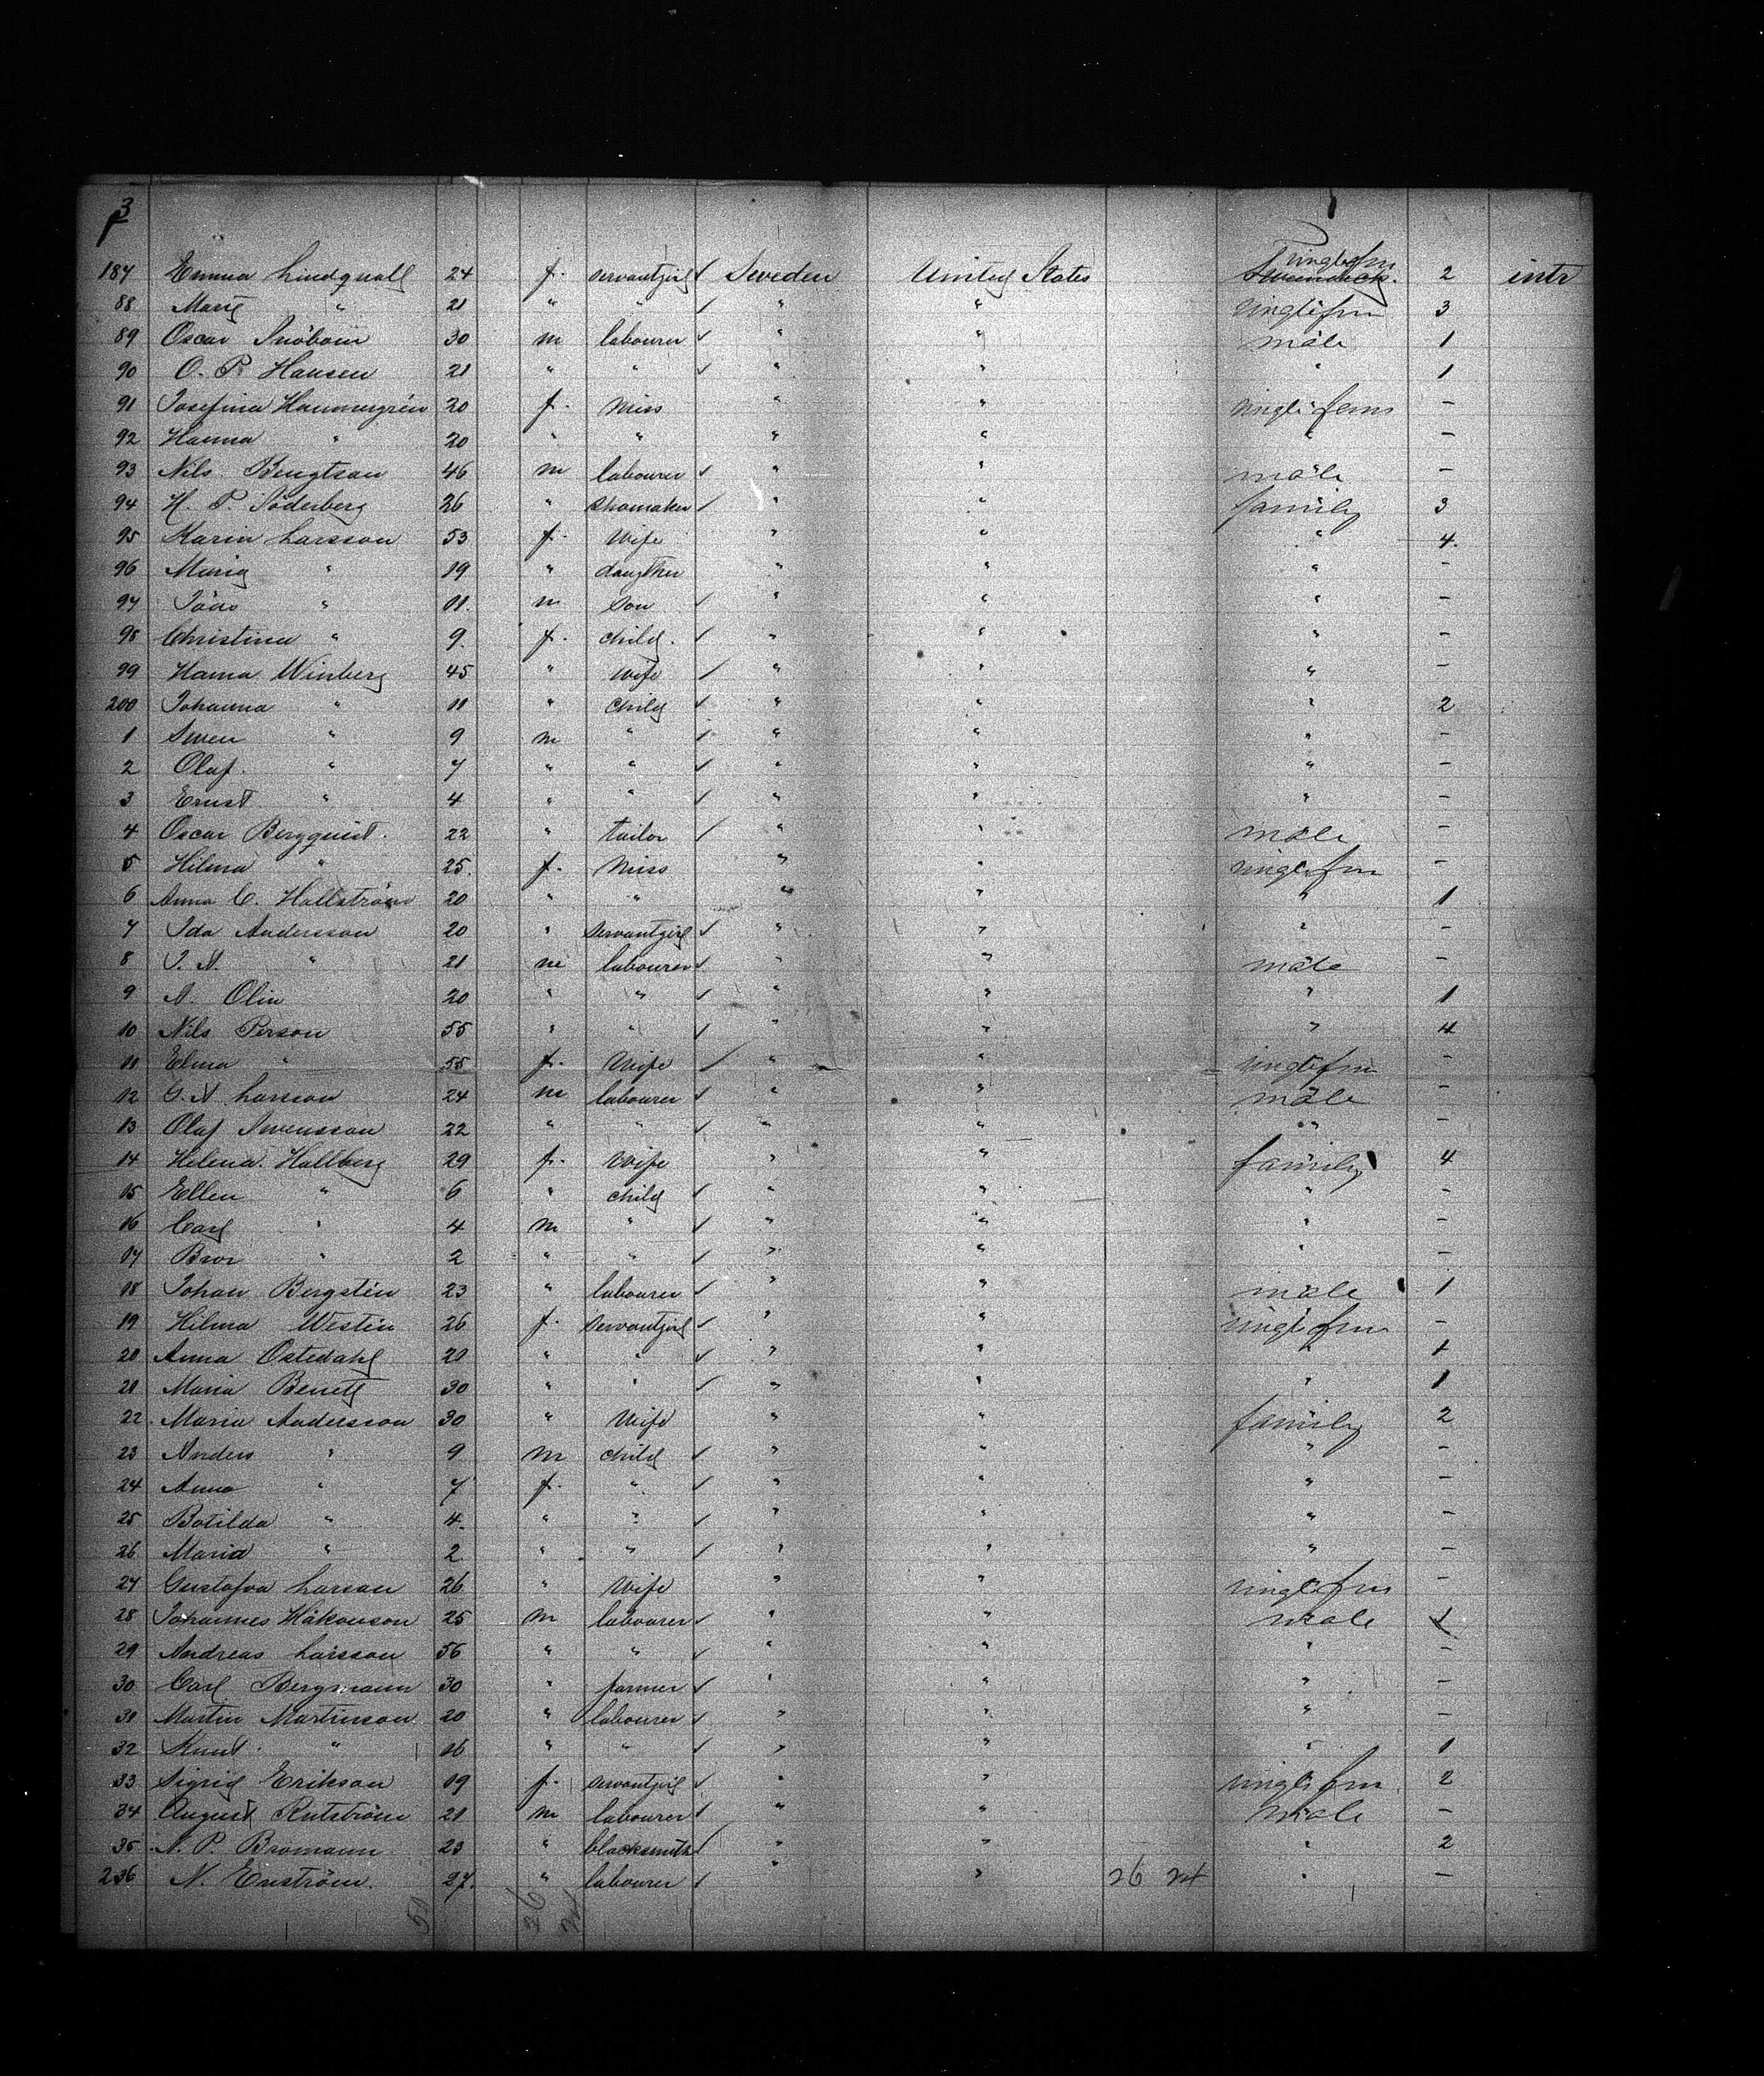 3
187 Emma Lindquall 24 f. servantgirl Sweden United States singlefem 2 intr
88 Marie " 21 " " " " singlefem 3
89 Oscar Snöbom 30 m labourer " " male 1
90 O. P. Hansen 21 " " " " " 1
91 Josefina Hammergrén 20 f. Miss " " single fem –
92 Hanna " 20 " " " " " –
93 Nils Bengtson 46 m labourer " " male –
94 H. P. Söderberg 26 " Shomaker " " family 3
95 Karin Larsson 53 f. Wife " " " 4
96 " 19 " daugther " " " –
97 Jöns " 11. m son " " " –
98 Christina " 9. f. child. " " " –
99 Hanna Winberg 45 " Wife " " " –
200 Johanna " 11 " child " " " 2
1 Swen " 9 m " " " " –
2 Olaf. " 7 " " " " " –
3 Ernst " 4 " " " " " –
4 Oscar Bergquist. 22 " tailor " " male –
5 Hilma " 25. f. Miss " " single fem –
6 Anna C. Hallström 20 " " " " " 1
7 Ida Andersson 20 " Servantgirl " " " –
8 J. A. " 21 m labourer " " male –
9 A. Olin 20 " " " " " 1
10 Nils Person 55 " " " " " 4
11 Elna " 55 f. Wife " " singlefem –
12 G. A. Larsson 24 m labourer " " male –
13 Olaf Swensson 22 " " " " " –
14 Helena Hallberg 29 f. Wife " " family 4
15 Ellen " 6 " child " " " –
16 Carl " 4 m " " " " –
17 Bror " 2 " " " " " –
18 Johan Bergstén 23 " labourer " " male 1
19 Hilma Westin 26 f. Servantgirl " " single fem –
20 Anna Ostedahl 20 " " " " " 1
21 Maria 30 " " " " " 1
22 Maria Andersson 30 " Wife " " family 2
23 Anders " 9 m child " " " –
24 Anna " 7 f. " " " " –
25 Botilda " 4. " " " " " –
26 Maria " 2 " " " " " –
27 Gustafva Larson 26 " Wife " " single fem –
28 Johannes Håkonson 25 m labourer " " male 1
29 Andreas Larsson 56 " " " " " –
30 Carl Bergmann 30 " farmer " " " –
31 Martin Martinson 20 " labourer " " " –
32 Knut " 16 " " " " " 1
33 Sigrid Erikson 19 f. servantgirl " " single fem 2
34 August Rutström 21 m labourer " " male –
35 N. P. Bromann 23 " blacksmith " " " 2
236 N. Enström. 27. " labourer " " 26 24 " –
50 26 24